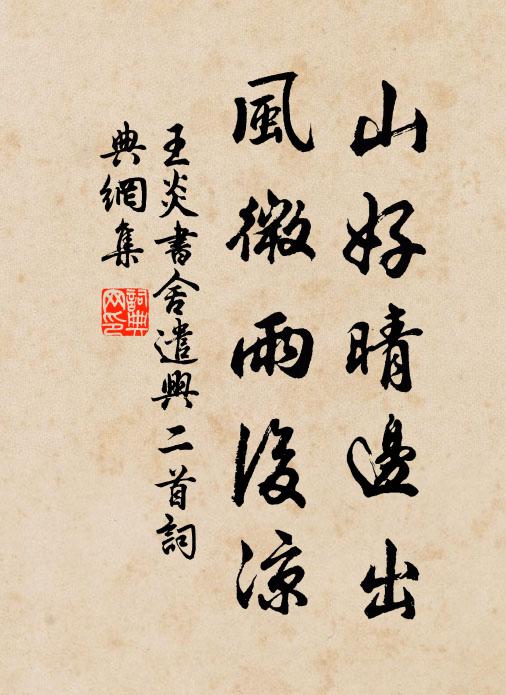 山好晴邊出
風微雨後涼
王炎書舍遣興二首詞
典網集
詞典
网印